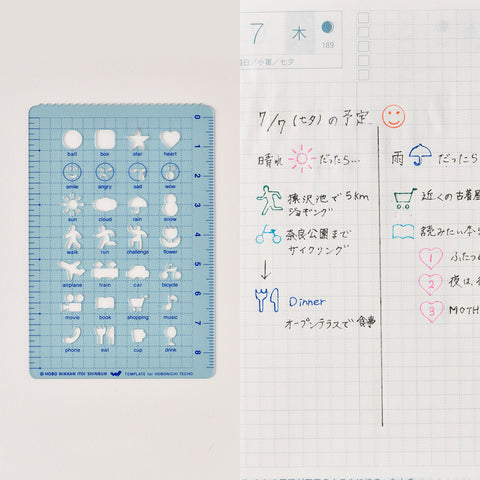 ball box star heart
smile angry sad wow
sun cloud rain snow
walk run challenge flower
airplane train car bicycle
movie book shopping music
phone eat cup drink
0
1
2
3
4
5
6
7
8
© HOBO NIKKAN ITOI SHINBUN TEMPLATE for HOBONICHI TECHO
7 木
189
日/小暑/七夕
7/7(七夕)の予定
晴れ だったら…
池で5km
ジョギング
奈良公園まで
サイクリング
Dinner
オープンテラスで食事
雨 だったら
近くの古着屋
読みたい本
1 ふたつ
2 夜は、
3 MOTH